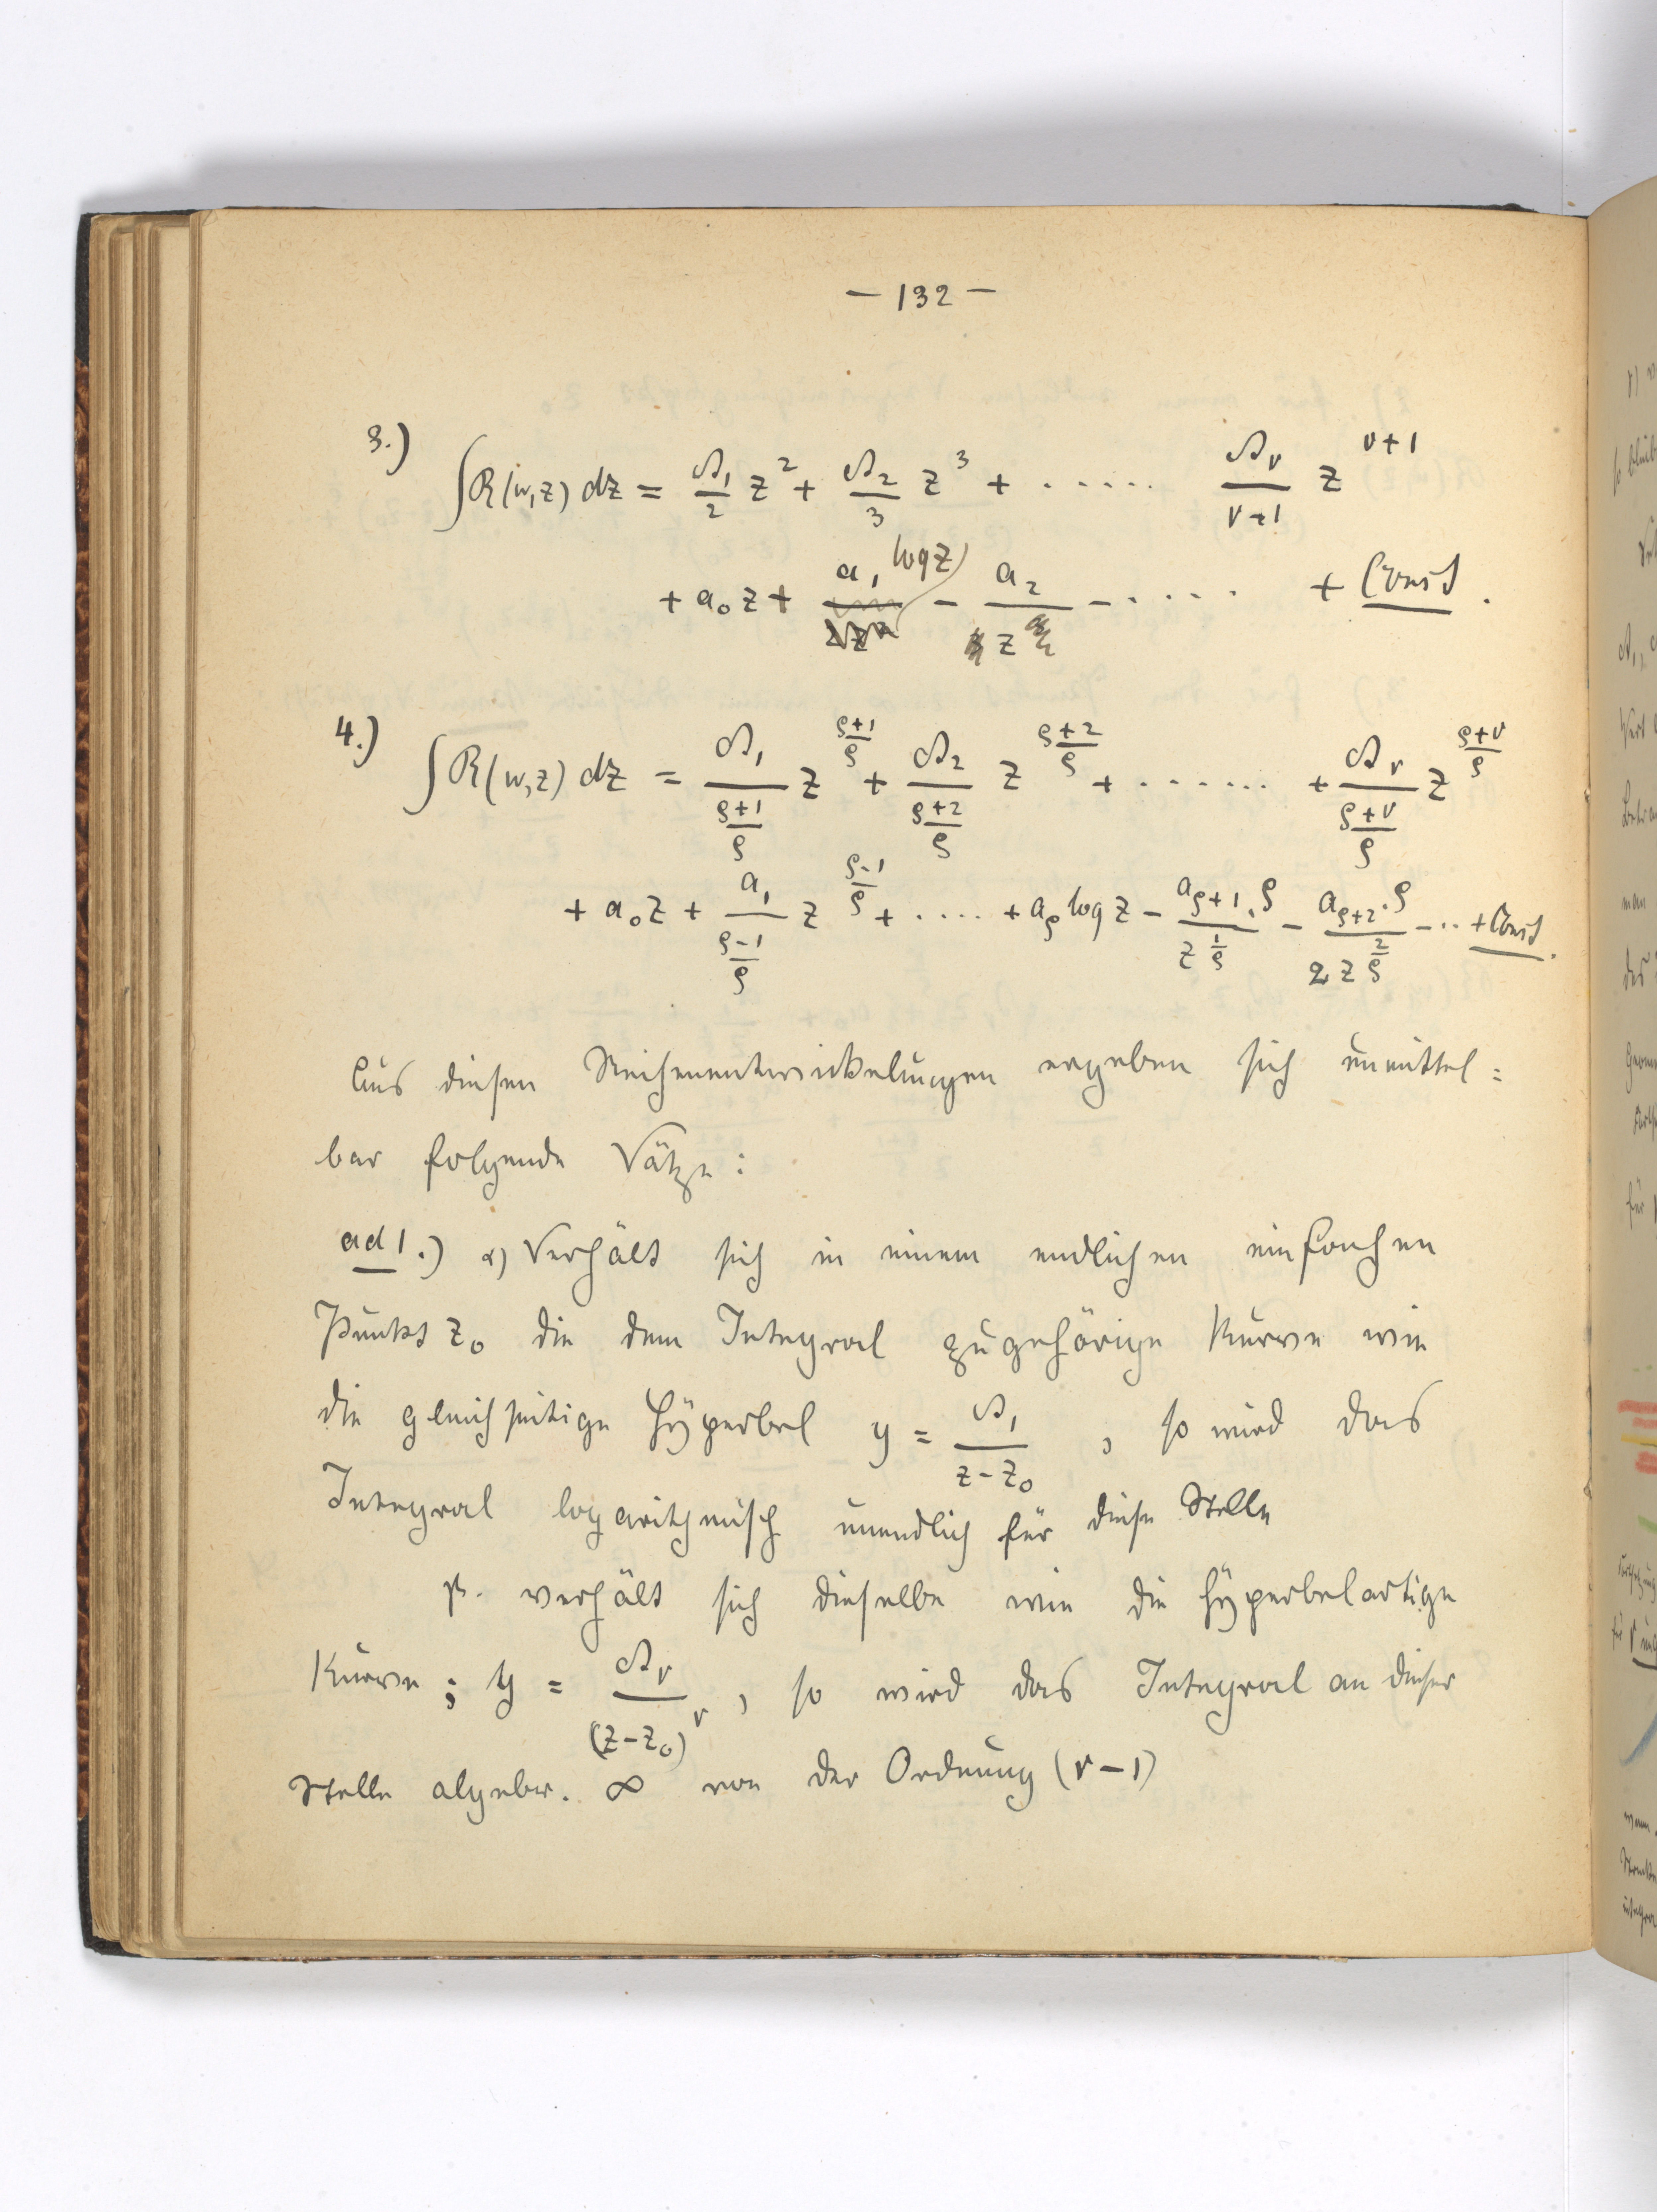 — 132 —
3.) ∫R(w,z) dz = 𝔄₁/2 z² + 𝔄₂/3 z³ + ..... 𝔄ᵥ/(ν+1) z^(ν+1)
+ a₀ z + a₁ log z − a₂/z − ..... + Const.
4.) ∫R(w,z) dz = 𝔄₁/((ϱ+1)/ϱ) z^((ϱ+1)/ϱ) + 𝔄₂/((ϱ+2)/ϱ) z^((ϱ+2)/ϱ) + ....... + 𝔄ᵥ/((ϱ+ν)/ϱ) z^((ϱ+ν)/ϱ)
+ a₀z + a₁/((ϱ-1)/ϱ) z^((ϱ-1)/ϱ) + ..... + a_ϱ log z − a_(ϱ+1)·ϱ/z^(1/ϱ) − a_(ϱ+2)·ϱ/(2 z^(2/ϱ)) − ... + Const.
Aus diesen Reihenentwickelungen ergeben sich unmittel=
bar folgende Sätze:
ad 1.) α) Verhält sich in einem endlichen einfachen
Punkt z₀ die dem Integral zugehörige Kurve wie
die gleichseitige Hyperbel y = 𝔄₁/(z-z₀), so wird das
Integral logarithmisch unendlich für diese Stelle
β. verhält sich dieselbe wie die hyperbelartige
Kurve; y = 𝔄ᵥ/(z-z₀)^ν, so wird das Integral an dieser
Stelle algebr. ∞ von der Ordnung (ν-1)